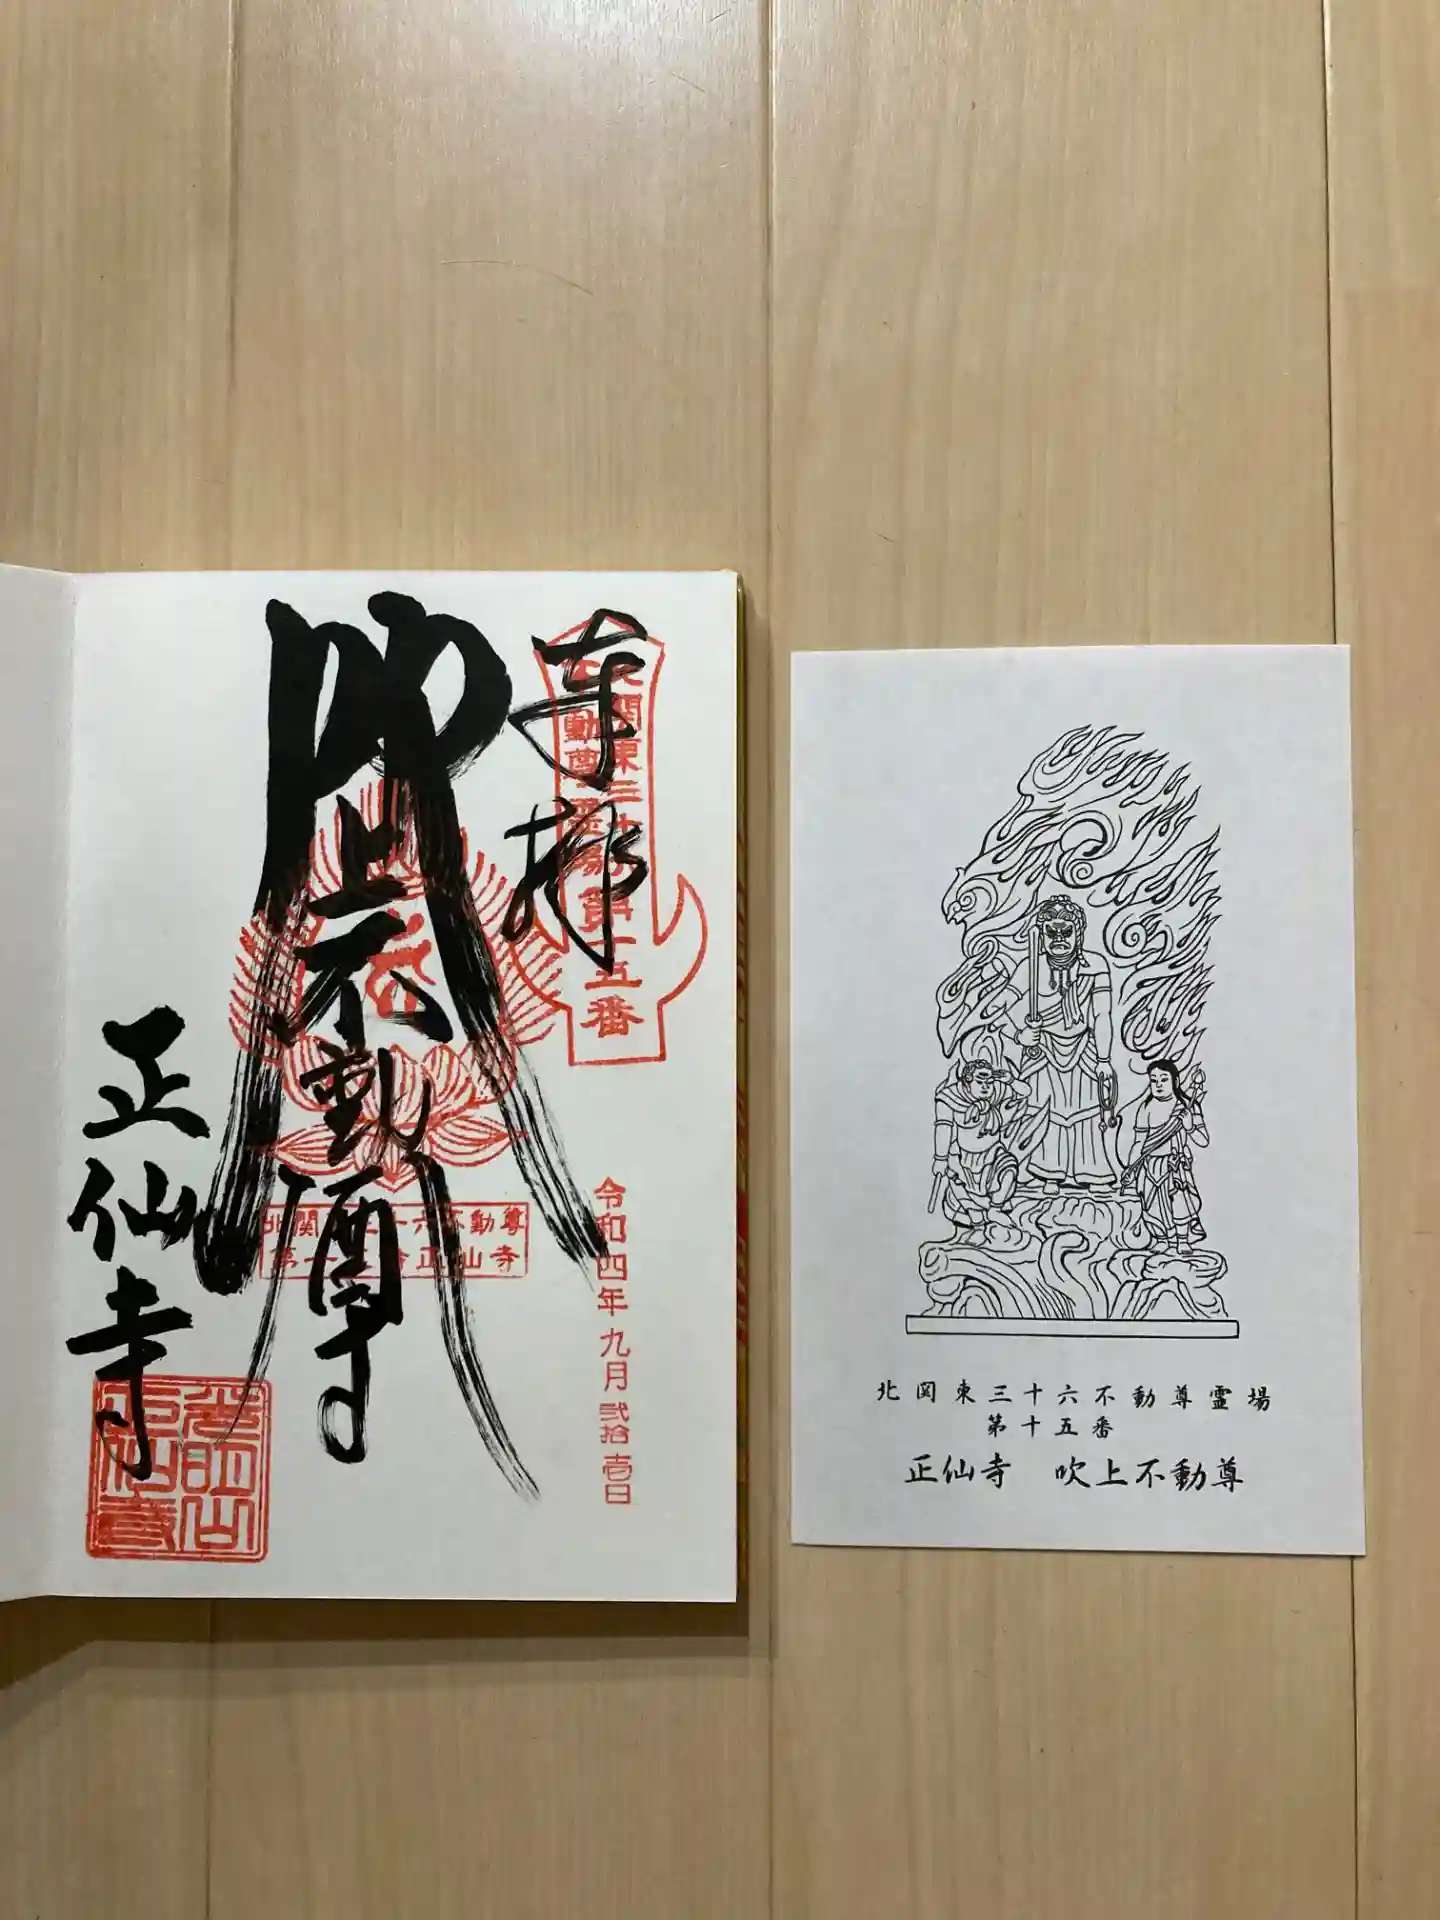 奉拝
北関東三十六
不動尊霊場第十五番
吹上不動尊
正仙寺
北関東三十六不動尊
第十五番 正仙寺
令和四年九月弐拾壱日
北関東三十六不動尊霊場
第十五番
正仙寺 吹上不動尊